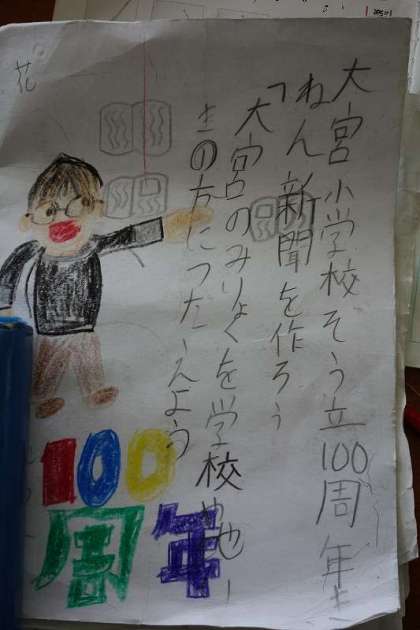 大宮小学校そう立100周年き
ねん新聞を作ろう
「大宮のみりょくを学校や地い
きの方につたえよう
花
100
周年